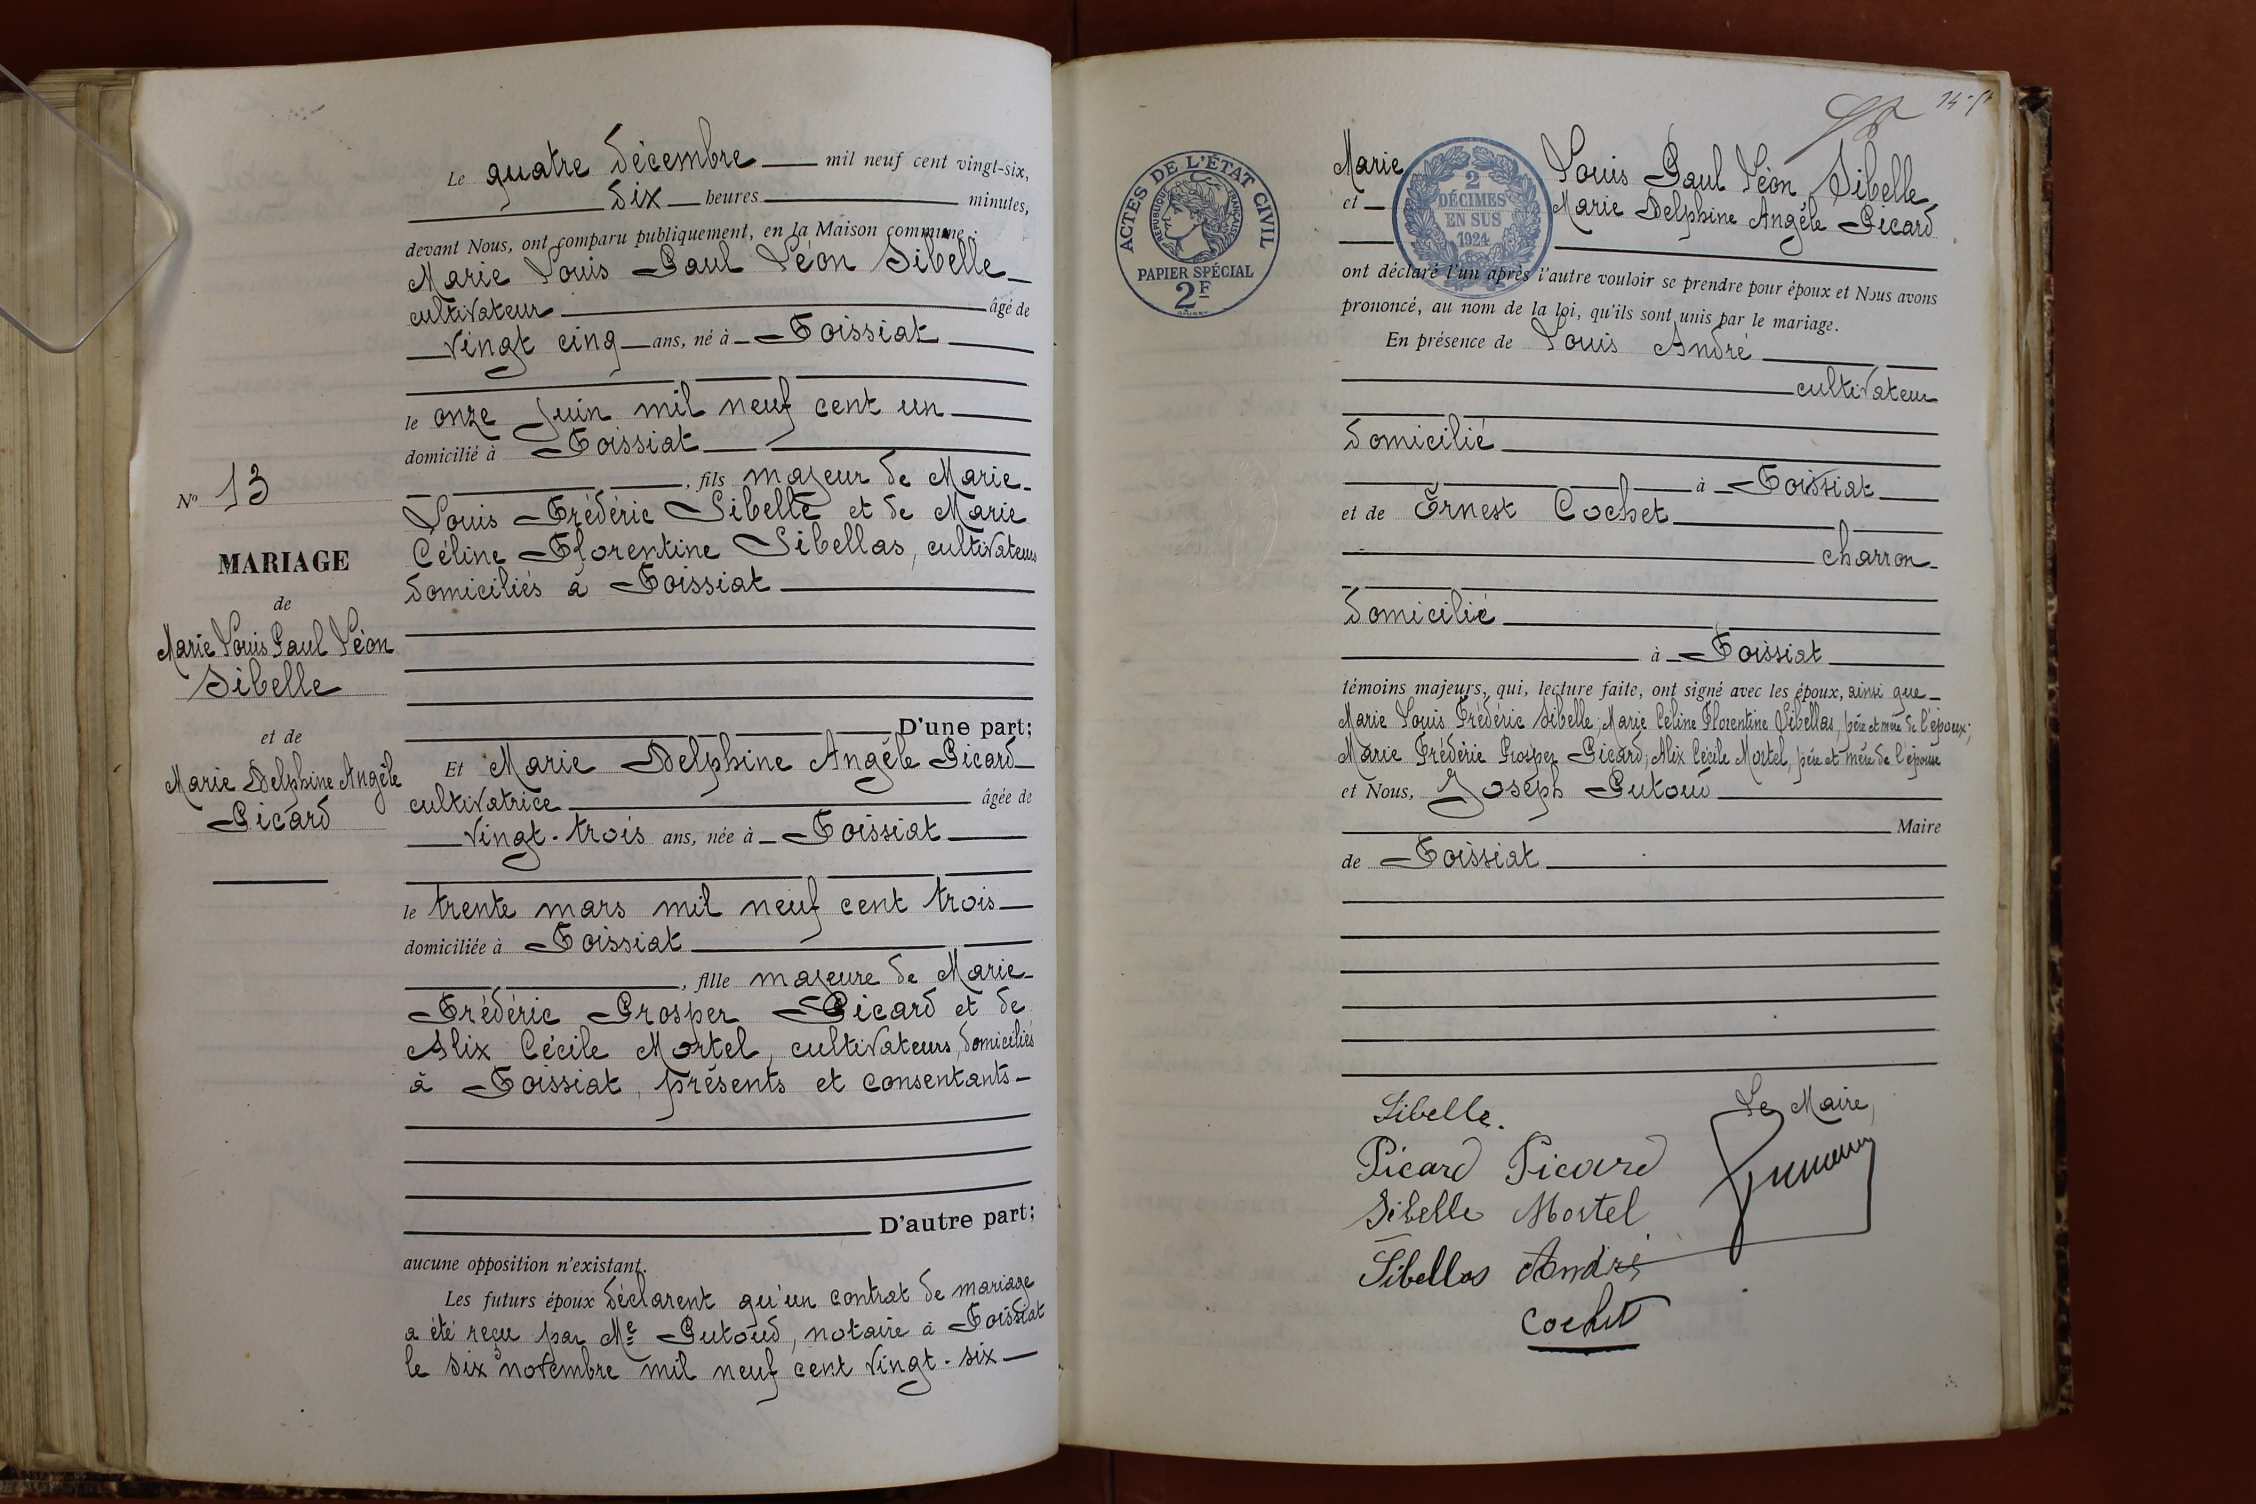 Le quatre Décembre mil neuf cent vingt-six,
Dix heures minutes,
devant Nous, ont comparu publiquement, en la Maison commune :
Marie Louis Paul Léon Sibelle
cultivateur âgé de
vingt cinq ans, né à Foissiat
le onze Juin mil neuf cent un
domicilié à Foissiat
, fils majeur de Marie
Louis Frédéric Sibelle et de Marie
Céline Florentine Sibellas, cultivateurs
Domiciliés à Foissiat
D'une part;
Et Marie Delphine Angèle Picard
cultivatrice âgée de
vingt-trois ans, née à Foissiat
le trente mars mil neuf cent trois
domiciliée à Foissiat
, fille majeure de Marie
Frédéric Prosper Picard et de
Alix Cécile Mortel, cultivateurs, domiciliés
à Foissiat, présents et consentants
D'autre part;
aucune opposition n'existant.
Les futurs époux déclarent qu'un contrat de mariage
a été reçu par Me Putoud, notaire à Foissiat
le six novembre mil neuf cent vingt-six
No 13
MARIAGE
de
Marie Louis Paul Léon
Sibelle
et de
Marie Delphine Angèle
Picard
ACTES DE L'ÉTAT CIVIL
RÉPUBLIQUE FRANÇAISE
PAPIER SPÉCIAL
2F
2
DÉCIMES
EN SUS
1924
Marie Louis Paul Léon Sibelle
et Marie Delphine Angèle Picard
ont déclaré l'un après l'autre vouloir se prendre pour époux et Nous avons
prononcé, au nom de la loi, qu'ils sont unis par le mariage.
En présence de Louis André
cultivateur
Domicilié
à Foissiat
et de Ernest Cochet
charron
Domicilié
à Foissiat
témoins majeurs, qui, lecture faite, ont signé avec les époux, ainsi que
Marie Louis Frédéric Sibelle, Marie Céline Florentine Sibellas, père et mère de l'époux;
Marie Frédéric Prosper Picard, Alix Cécile Mortel, père et mère de l'épouse
et Nous, Joseph Putoud
Maire
de Foissiat
Sibelle.
Le Maire,
Picard Picard
Sibelle Mortel
Sibellas André
Cochet